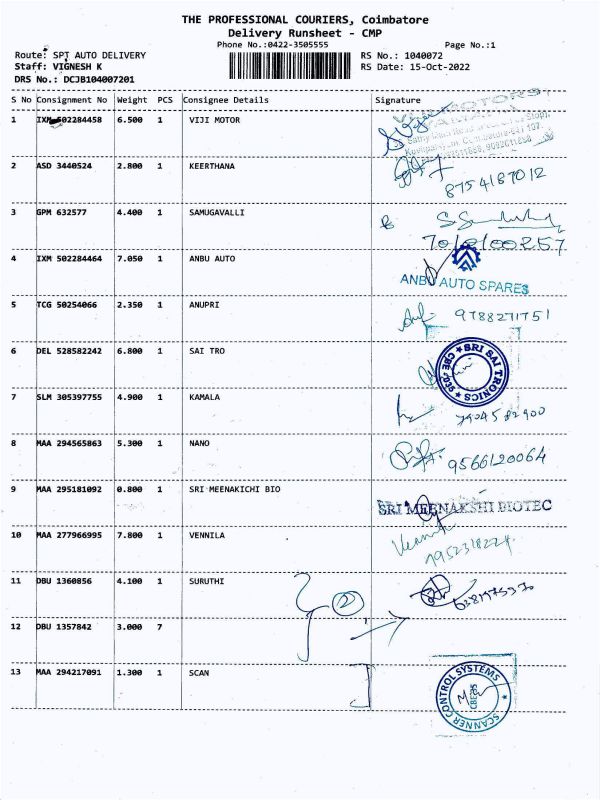 THE PROFESSIONAL COURIERS, Coimbatore
Delivery Runsheet - CMP
Phone No.:0422-3505555
Page No.:1
Route: SPT AUTO DELIVERY
RS No.: 1040072
Staff: VIGNESH K
RS Date: 15-Oct-2022
DRS No.: DCJB104007201
S No Consignment No Weight PCS Consignee Details Signature
1 IXM 502284458 6.500 1 VIJI MOTOR
2 ASD 3440524 2.800 1 KEERTHANA
8754187012
3 GPM 632577 4.400 1 SAMUGAVALLI
4 IXM 502284464 7.050 1 ANBU AUTO
ANBU AUTO SPARES
5 TCG 50254066 2.350 1 ANUPRI
9788271751
6 DEL 528582242 6.800 1 SAI TRO
SRI SAI TRONICS
7 SLM 305397755 4.900 1 KAMALA
7904582900
8 MAA 294565863 5.300 1 NANO
9566120064
9 MAA 295181092 0.800 1 SRI MEENAKICHI BIO
SRI MEENAKSHI BIOTEC
10 MAA 277966995 7.800 1 VENNILA
11 DBU 1360856 4.100 1 SURUTHI
2
12 DBU 1357842 3.000 7
13 MAA 294217091 1.300 1 SCAN
SCANNER CONTROL SYSTEMS